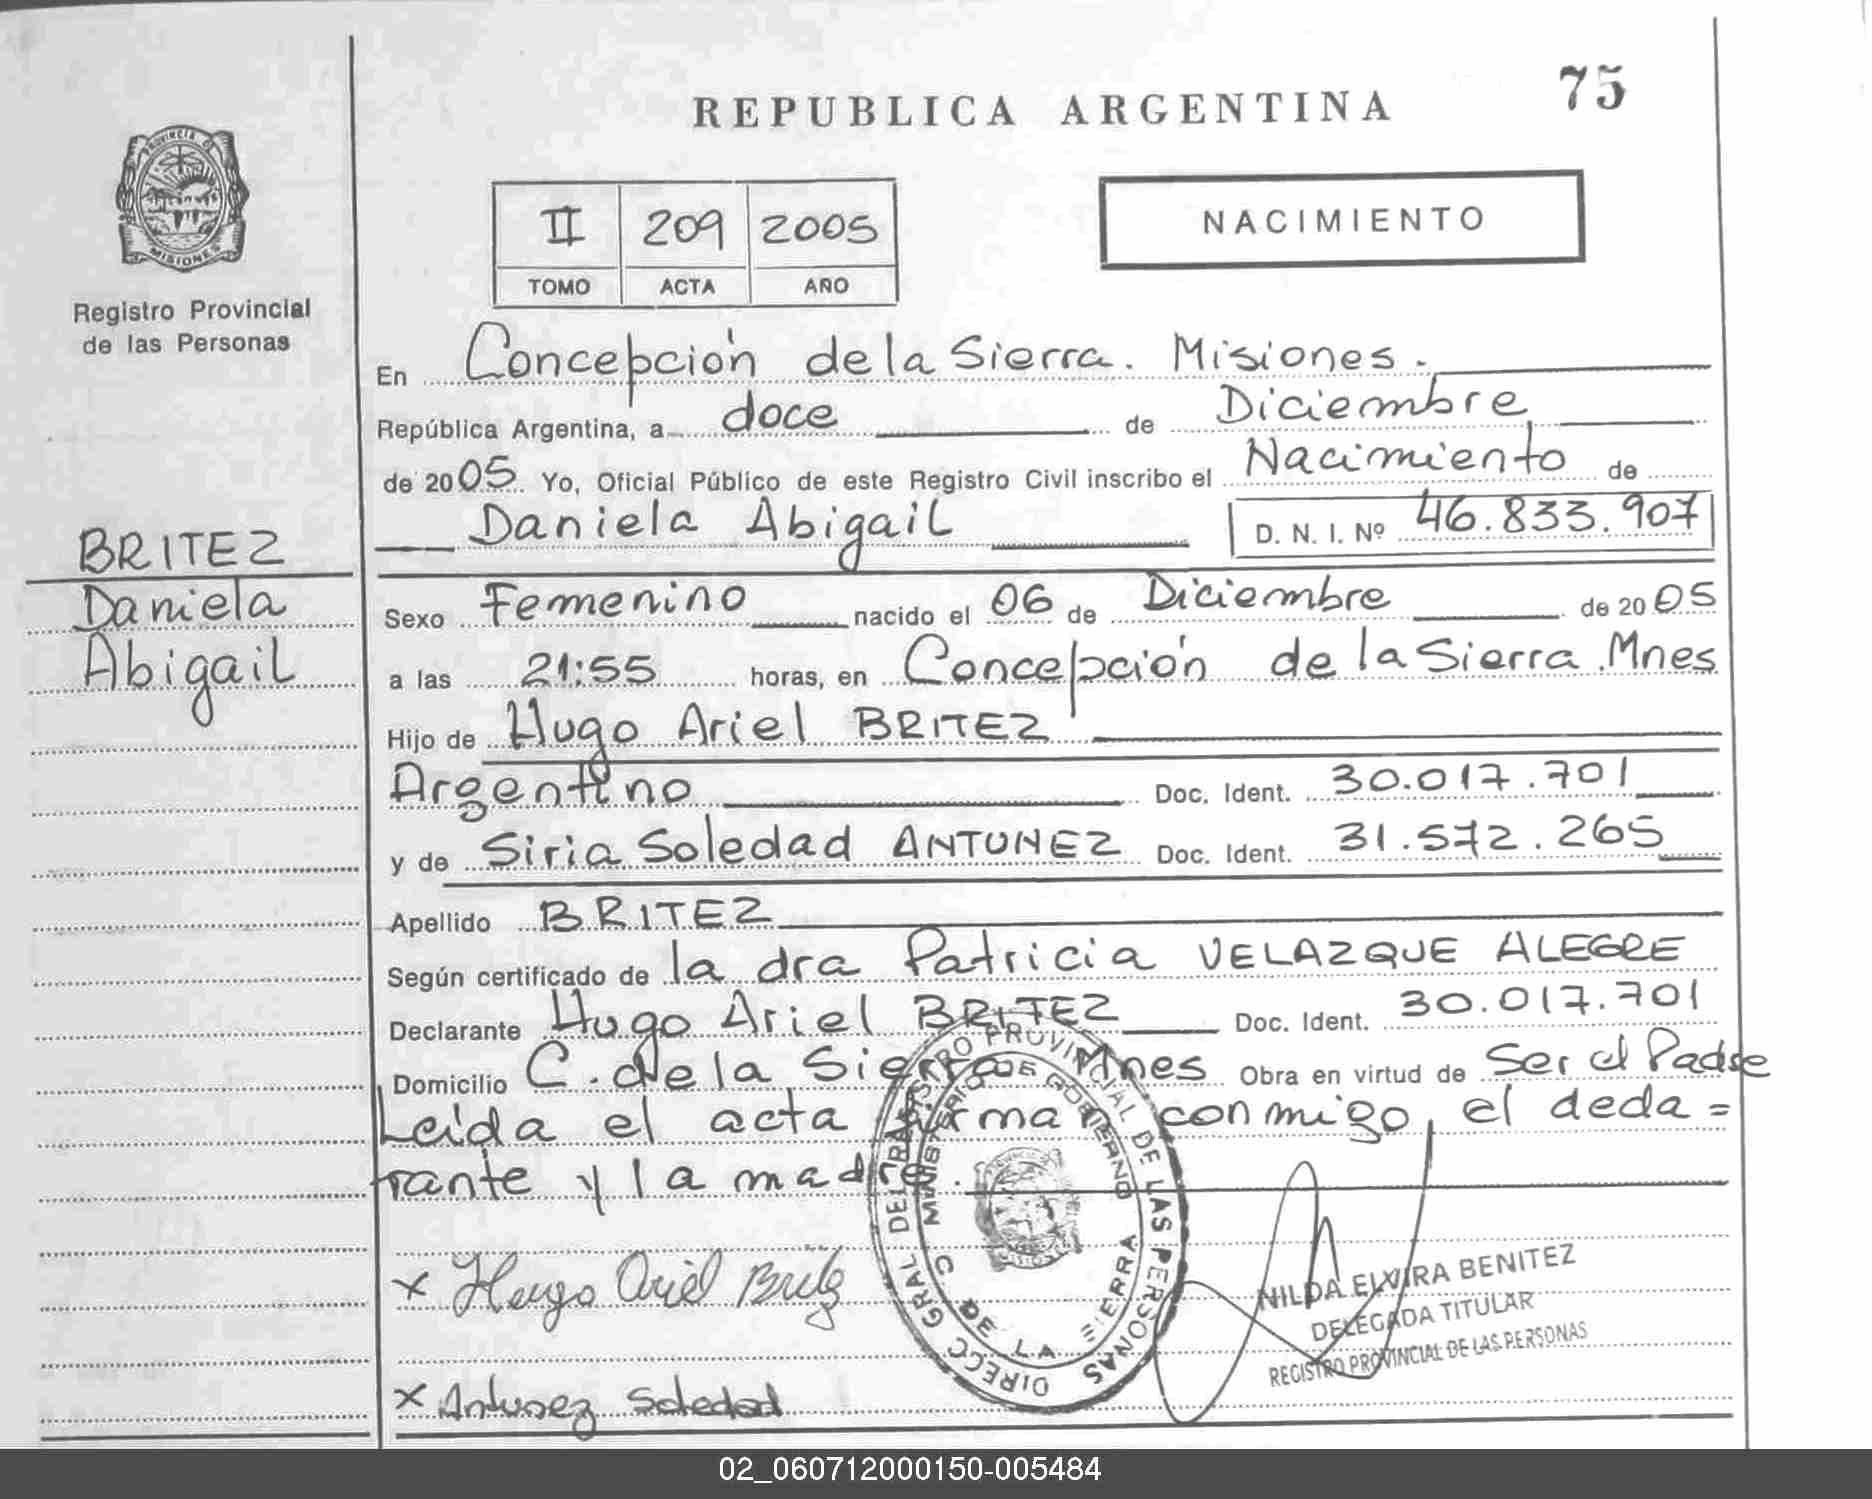 75
REPUBLICA ARGENTINA
PROVINCIA DE
MISIONES
Registro Provincial
de las Personas
II 209 2005
TOMO ACTA AÑO
NACIMIENTO
En Concepción de la Sierra. Misiones.
República Argentina, a doce de Diciembre
de 2005 Yo, Oficial Público de este Registro Civil inscribo el Nacimiento de
Daniela Abigail D. N. I. Nº 46.833.907
BRITEZ
Daniela
Abigail
Sexo Femenino nacido el 06 de Diciembre de 2005
a las 21:55 horas, en Concepción de la Sierra. Mnes
Hijo de Hugo Ariel BRITEZ
Argentino Doc. Ident. 30.017.701
y de Siria Soledad ANTUNEZ Doc. Ident. 31.572.265
Apellido BRITEZ
Según certificado de la dra Patricia VELAZQUE ALEGRE
Declarante Hugo Ariel BRITEZ Doc. Ident. 30.017.701
Domicilio C. de la Sierra Mnes Obra en virtud de Ser el Padre
Leida el acta firman conmigo, el decla=
rante y la madre.
DIRECC GRAL DEL REGISTRO PROVINCIAL DE LAS PERSONAS
MINISTERIO DE GOBIERNO
C DE LA SIERRA
x Hugo Ariel Britez
x Antunez Soledad
NILDA ELVIRA BENITEZ
DELEGADA TITULAR
REGISTRO PROVINCIAL DE LAS PERSONAS
02_060712000150-005484